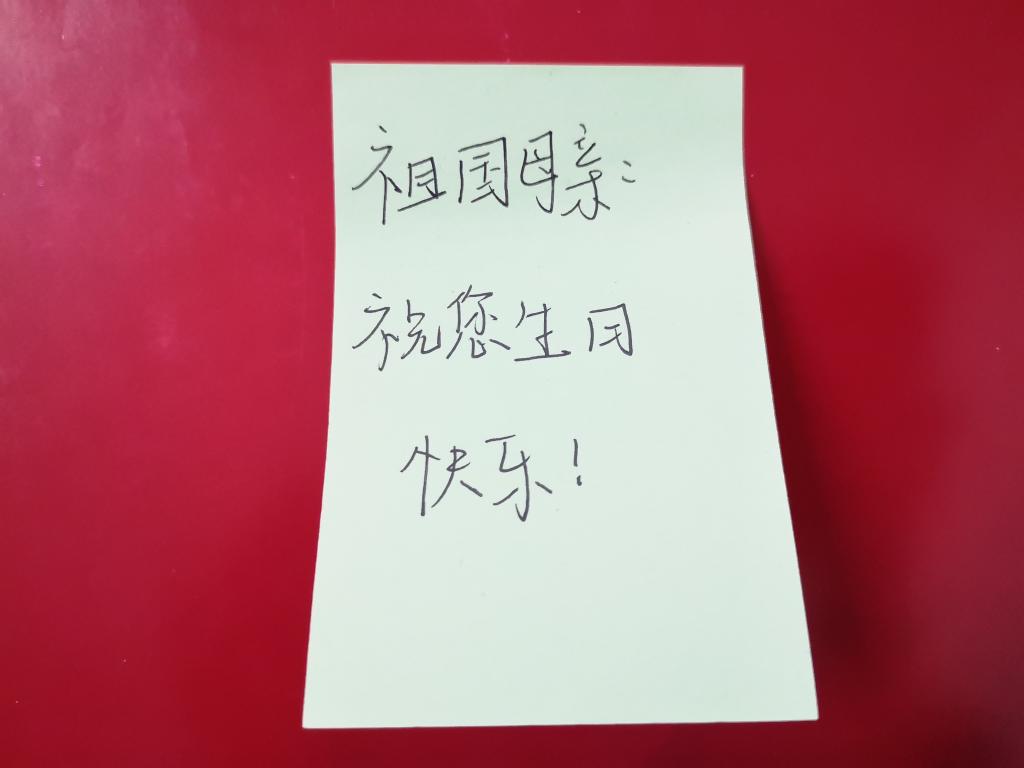 祖国母亲:
祝您生日
快乐!